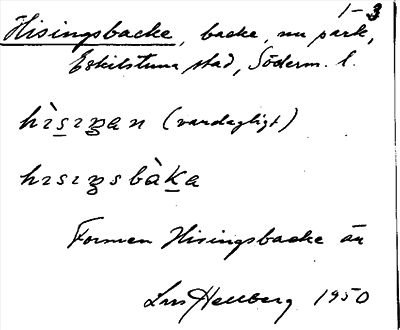 1-3
Hisingsbacke, backe, nu park,
Eskilstuna stad, Söderm. l.
hìsıŋan (vardagligt)
hısıŋsbàka
Formen Hisingsbacke är
Lars Hellberg 1950